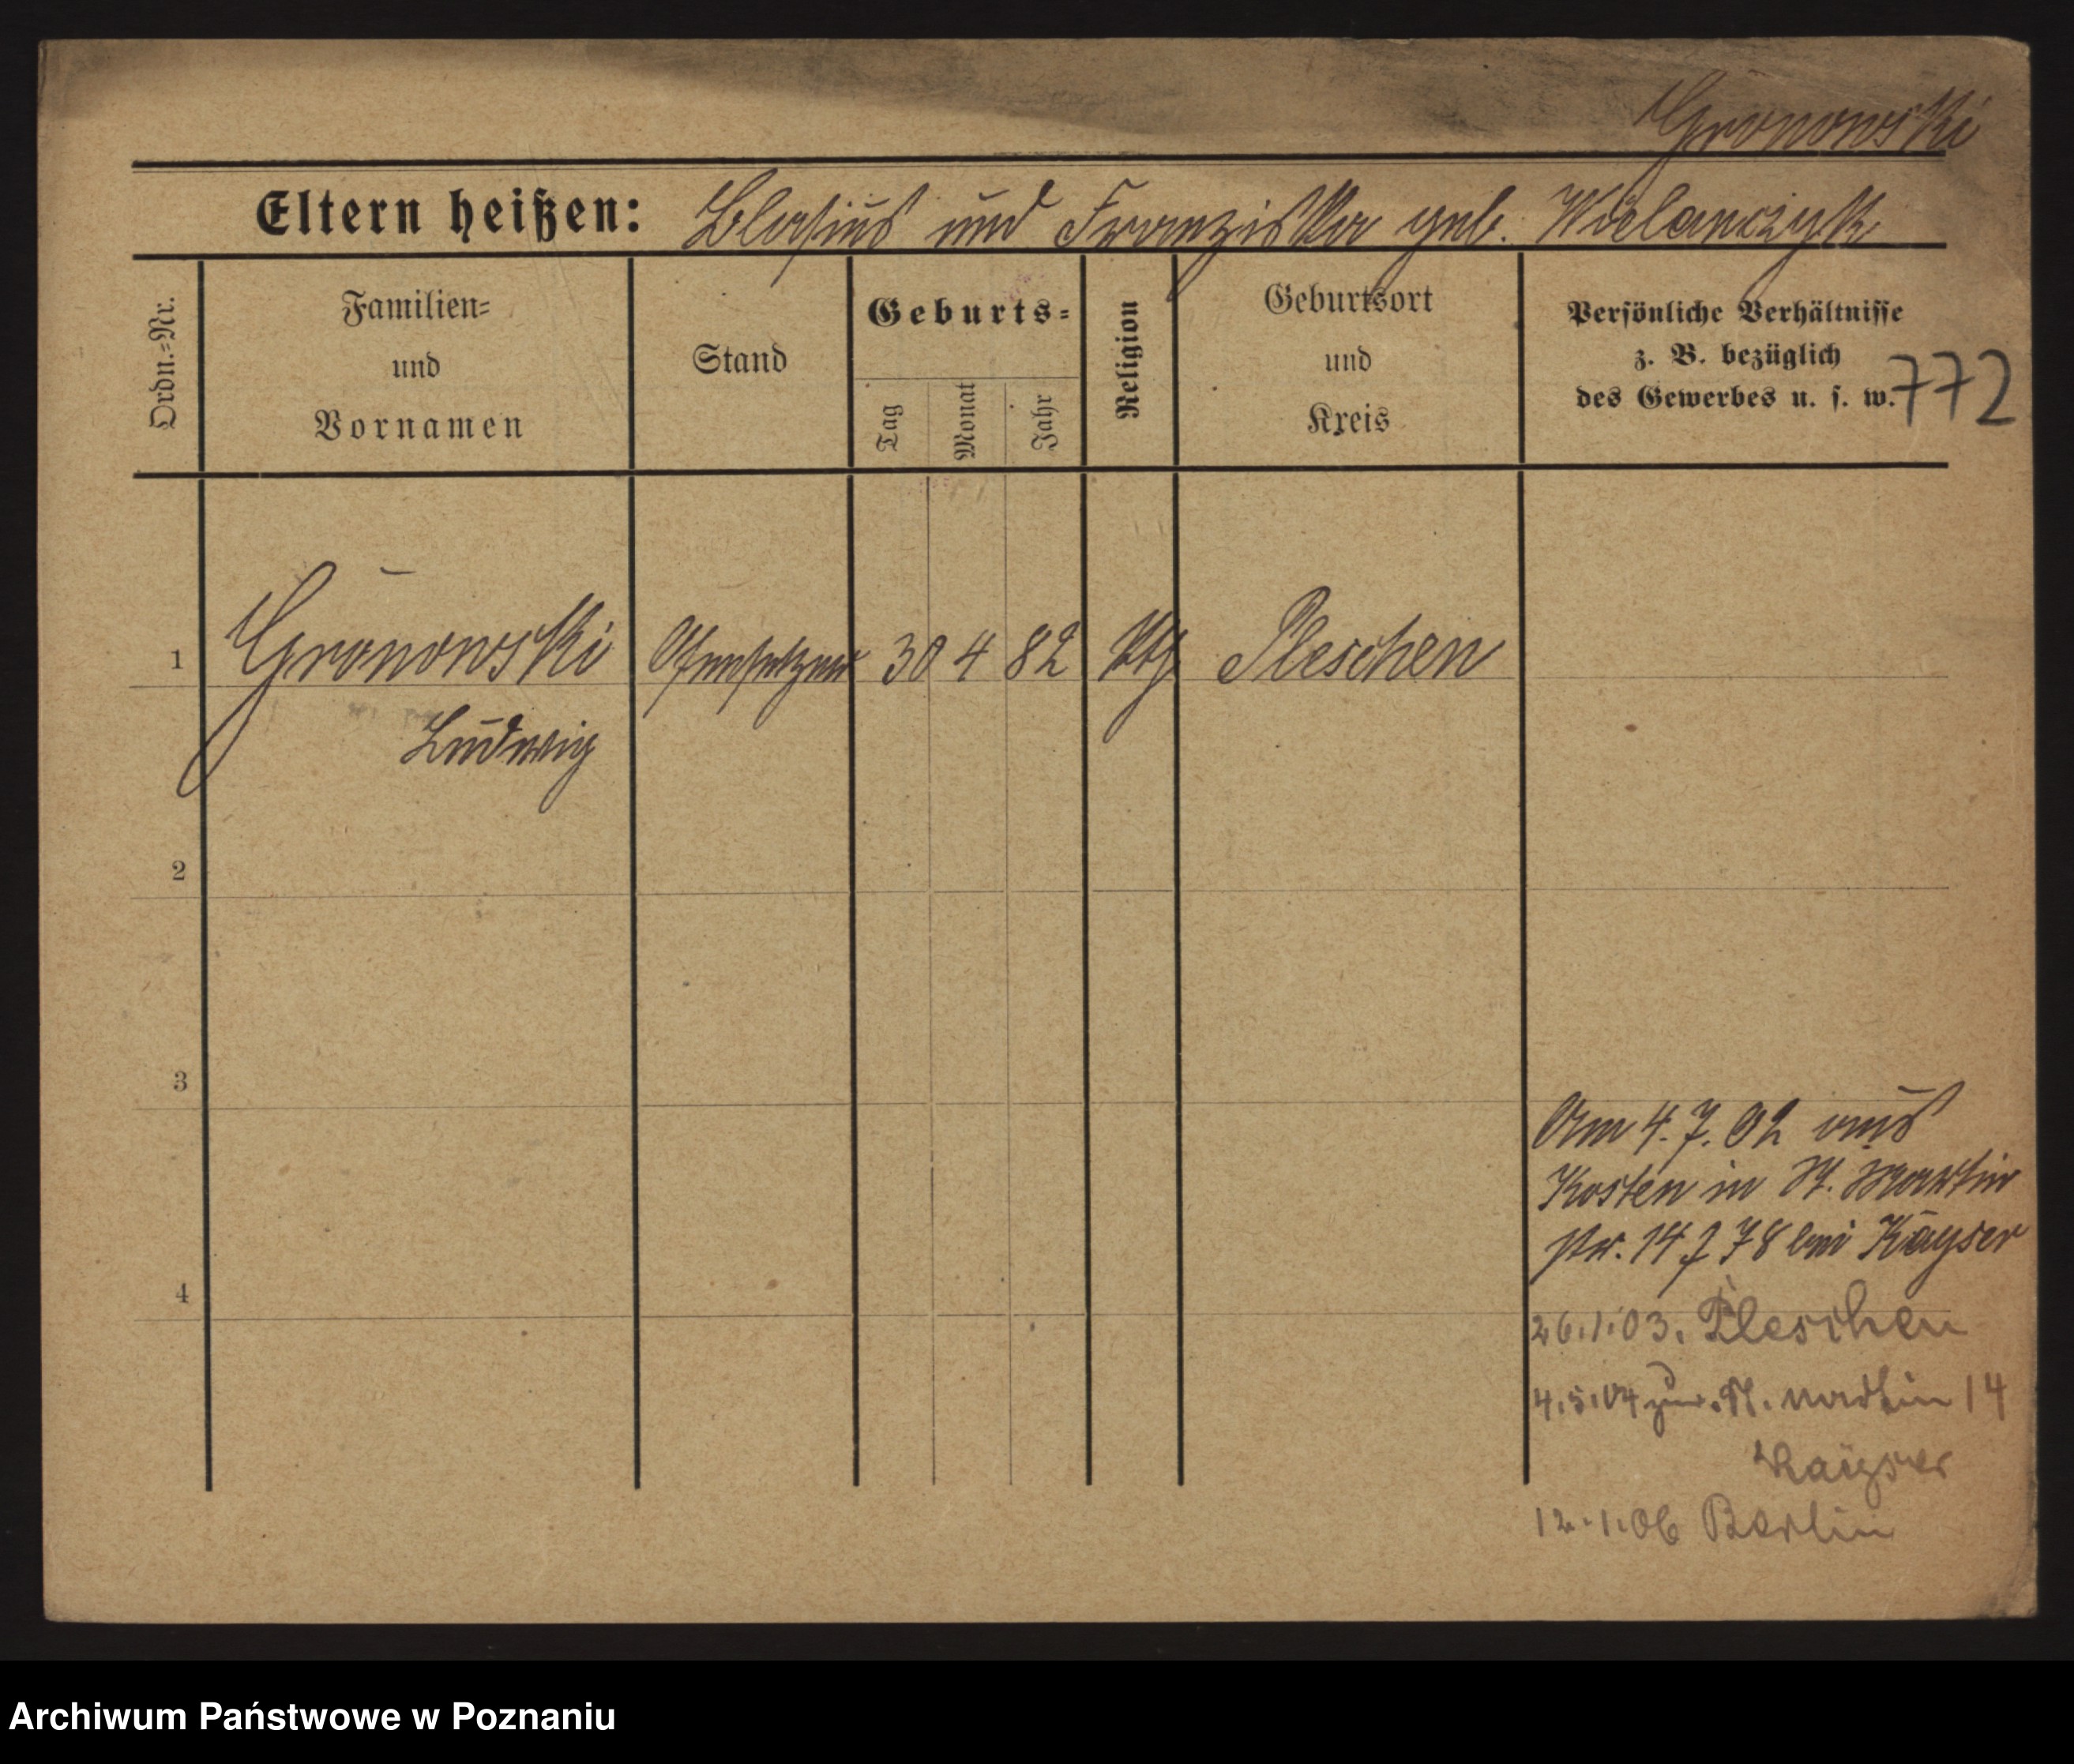 Gronowski
Eltern heißen: Blasius und Franziska geb. Wielanczyk
Ordn.=Nr.
Familien=
und
Vornamen
Stand
Geburts=
Tag
Monat
Jahr
Religion
Geburtsort
und
Kreis
Persönliche Verhältnisse
z. B. bezüglich
des Gewerbes u. s. w.
772
1 Gronowski Ofensetzer 30 4 82 kth Pleschen
Ludwig
2
3
Am 4. 7. 02 aus
Kosten in St. Martin
14 78 bei Kayser
4
26.1.03. Pleschen
4.5.04 zur. St. Martin 14
Kayser
12.1.06 Berlin
Archiwum Państwowe w Poznaniu